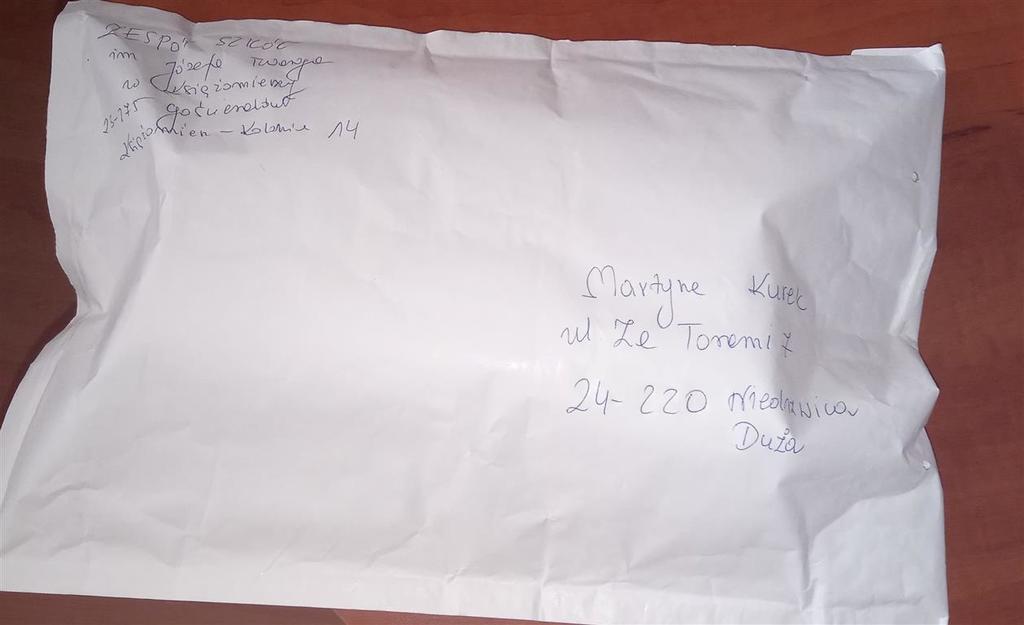 ZESPÓŁ SZKÓŁ
im Józefa Twaroga
w Księżomierzy
23-275 Gościeradów
Księżomierz - Kolonia 14
Martyna Kurek
ul Za Torami 7
24-220 Niedrzwica
Duża